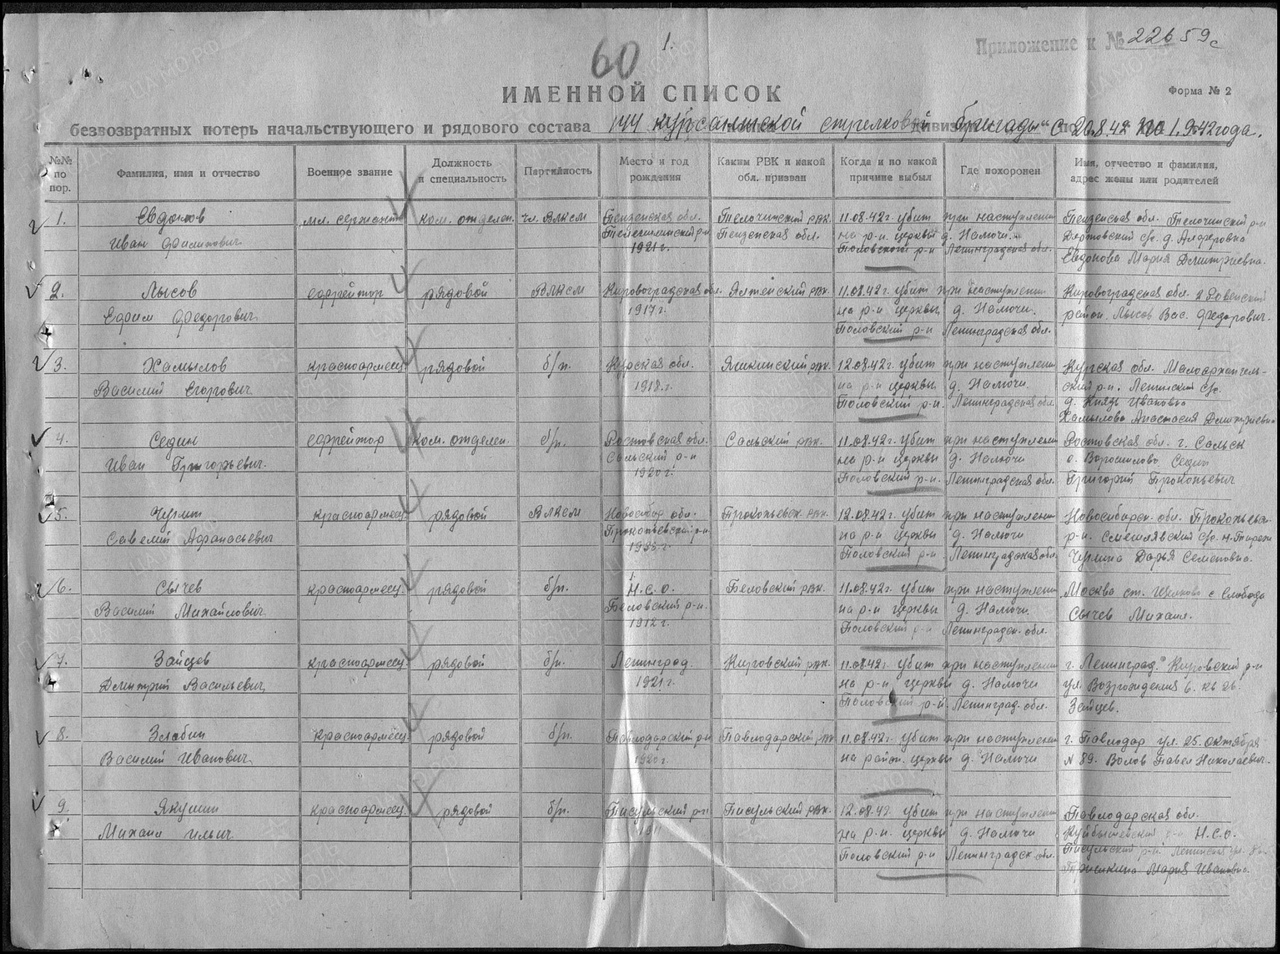 60
1.
Приложение к № 22659с
ИМЕННОЙ СПИСОК
Форма № 2
безвозвратных потерь начальствующего и рядового состава 144 курсантской стрелковой бригады с 20.8.42 по 1.9.42 года.
№№ по пор.
Фамилия, имя и отчество
Военное звание
Должность и специальность
Партийность
Место и год рождения
Каким РВК и какой обл. призван
Когда и по какой причине выбыл
Где похоронен
Имя, отчество и фамилия, адрес жены или родителей
1. Евдонов мл. сержант ком. отделен. чл. Влксм Пензенская обл. рвк. 11.08.42г. убит при наступлении Пензенская обл. р-н
Иван Пензенская обл. на р-н церкви д. Налючи
1921 г. Половский р-н Ленинградская обл. Евдонова Мария Дмитриевна.
2. Лысов ефрейтор рядовой Влксм Кировоградская обл. рвк. 11.08.42г. убит при наступлении Кировоградская обл.
Ефим Федорович. 1917 г. на р-н церквы д. Налючи. район. Лысов Вас. Федорович.
Половский р-н Ленинградская обл.
3. Хамылов красноармеец рядовой б/п. Курская обл. рвк. 12.08.42г убит при наступлении Курская обл. Малоархангель-
Василий Егорович. на р-н церквы д. Налючи ский р-н. Ленинский с/с.
Половский р-н. Ленинградская обл. д. Князь Ивановка
Хамылова Анастасия Дмитриевна
4. Седин ефрейтор ком. отделен. б/п. Ростовская обл. Сальский рвк. 11.08.42г. убит при наступлении Ростовская обл. г. Сальск
Иван Григорьевич. Сальский р-н на р-н церквы д. Налючи с. Ворошилово Седин
1920 г. Половский р-н. Ленинградская обл. Григорий Прокопьевич
5. красноармеец рядовой Влксм Новосибир обл. Прокопьевск. рвк. 12.08.42г. убит при наступлении Новосибирск. обл. Прокопьевск.
Савелий Афанасьевич Прокопьевский р-н на р-н церквы д. Налючи
Половский р-н Ленинградская обл. Дарья Семеновна.
6. Сычев красноармеец рядовой б/п. Н.С.О. Беловский рвк. 11.08.42г убит при наступлении Москва ст. с Слобода
Василий Михайлович. Беловский р-н. на р-н. церквы д. Налючи. Сычев Михаил.
1912 г. Половский р-н Ленинградск. обл.
7. Зайцев красноармеец рядовой б/п. Ленинград Кировский рвк. 11.08.42г убит при наступлении г. Ленинград Кировский р-н
Дмитрий Васильевич. 1921 г. на р-н церквы д. Налючи ул. Возрождения 6. кв 26.
Половский р-н Ленинград. обл. Зайцев.
8. Злабин красноармеец рядовой б/п. Павлодарский р-н Павлодарский рвк 11.08.42г. убит при наступлении г. Павлодар ул. 25. октября
Василий Иванович. 1920 г. на район. церквы д. Налючи № 89. Волов Павел Николаевич.
9. Якушин красноармеец рядовой б/п. Тисульский р-н Тисульский рвк. 12.08.42 убит при наступлении Павлодарская обл.
Михаил Ильич на р-н. церквы д. Налючи Куйбышевский р-н Н.С.О.
Половский р-н Ленинградск обл. Тисульский р-н
Мария Ивановна